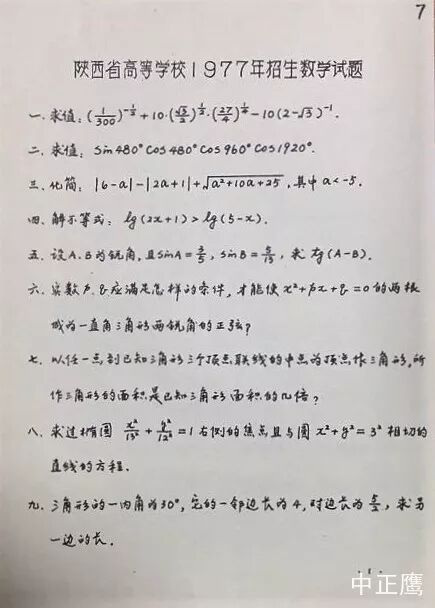 7
陕西省高等学校1977年招生数学试题
一. 求值: (1/300)^{-1/2}+10·(√3/2)^{1/2}·(27/4)^{1/4}-10(2-√3)^{-1}.
二. 求值: Sin480°Cos480°Cos960°Cos1920°.
三. 化简: |6-a|-|2a+1|+√(a²+10a+25), 其中a<-5.
四. 解不等式: lg(2x+1)>lg(5-x).
五. 设A、B为锐角, 且SinA=3/5, SinB=5/13, 求tg(A-B).
六. 实数p、q应满足怎样的条件, 才能使x²+px+q=0的两根
成为一直角三角形两锐角的正弦?
七. 以任一点到已知三角形三个顶点联线的中点为顶点作三角形, 所
作三角形的面积是已知三角形面积的几倍?
八. 求过椭圆 x²/13²+y²/12²=1右侧的焦点且与圆x²+y²=3²相切的
直线的方程.
九. 三角形的一内角为30°, 它的一邻边长为4, 对边长为5/2, 求另
一边的长.
·1·
中正鹰